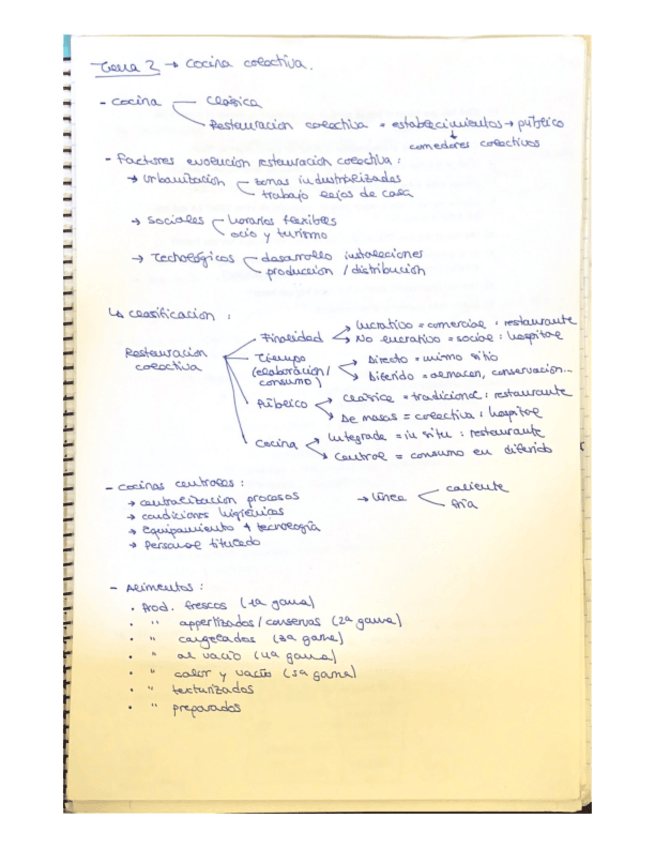 Tema 2 → cocina colectiva.
- cocina — clásica
Restauración colectiva = establecimientos → público
↓
comedores colectivos
- Factores evolución restauración colectiva :
→ urbanización — zonas industrializadas
trabajo lejos de casa
→ sociales — horarios flexibles
ocio y turismo
→ Tecnológicos — desarrollo instalaciones
producción / distribución
↳ clasificación :
Restauración colectiva
Finalidad → lucrativo = comercial : restaurante
→ No lucrativo = social : hospital
Tiempo (elaboración/ consumo) → Directo = mismo sitio
→ Diferido = almacen, conservación...
Público → clásica = tradicional : restaurante
→ De masas = colectiva : hospital
cocina → Integrada = in situ : restaurante
→ Central = consumo en diferido
- cocinas centrales :
→ centralización procesos
→ condiciones higiénicas
→ Equipamiento + tecnología
→ Personal titulado
→ línea — caliente
fría
- Alimentos :
• Prod. frescos (1a gama)
• " appertizados / conservas (2a gama)
• " congelados (3a gama)
• " al vacío (4a gama)
• " calor y vacío (5a gama)
• " texturizados
• " preparados